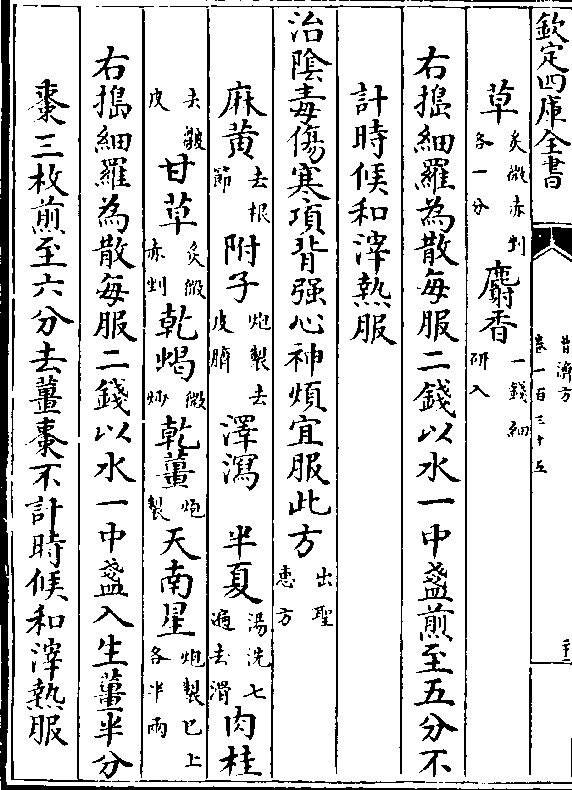 欽定四庫全書
普濟方
卷一百三十五
草炙微赤剉各一分 麝香一錢細研入
右搗細羅為散每服二錢以水一中盞煎至五分不
計時候和滓熱服
治陰毒傷寒項背强心神煩宜服此方出聖惠方
麻黄去根節 附子炮製去皮臍 澤瀉 半夏湯洗七遍去滑 肉桂
去皺皮 甘草炙微赤剉 乾蝎微炒 乾薑炮製 天南星炮製已上各半兩
右搗細羅為散每服二錢以水一中盞入生薑半分
棗三枚煎至六分去薑棗不計時候和滓熱服